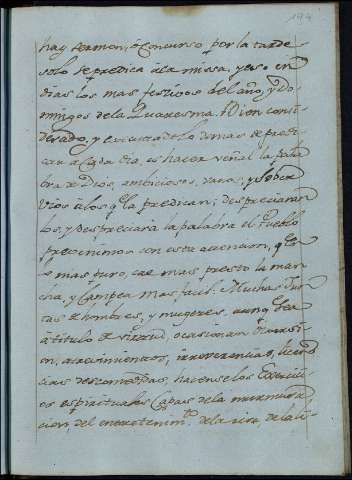 194
hay sermon, ò Concurso por la tarde
solo se predica à la missa, y eso en
dias los mas festivos del año, y Do-
mingos de la Quaresma. Bien consi-
derado, y lo demas se predi-
car a Cada dia, es hacer venal la pala-
bra de Dios, ambiciosos, vanos, y sober-
vios à los q̃ la predican; despreciaran-
los, y despreciarà la palabra el Pueblo
prevenimos con esta atencion, q̃ en
lo mas puro, cae mas presto la man-
cha, y Campea mas facil. Muchas Jun-
tas de hombres, y mugeres, aunq̃ sea
à titulo de virtud, ocasionan diversi-
on, atrevimientos, irreverencias, licen-
cias descomedidas, hacense los Exercici-
os espirituales Capas de la murmura-
cion, del entretenimto. de la risa, de la li-